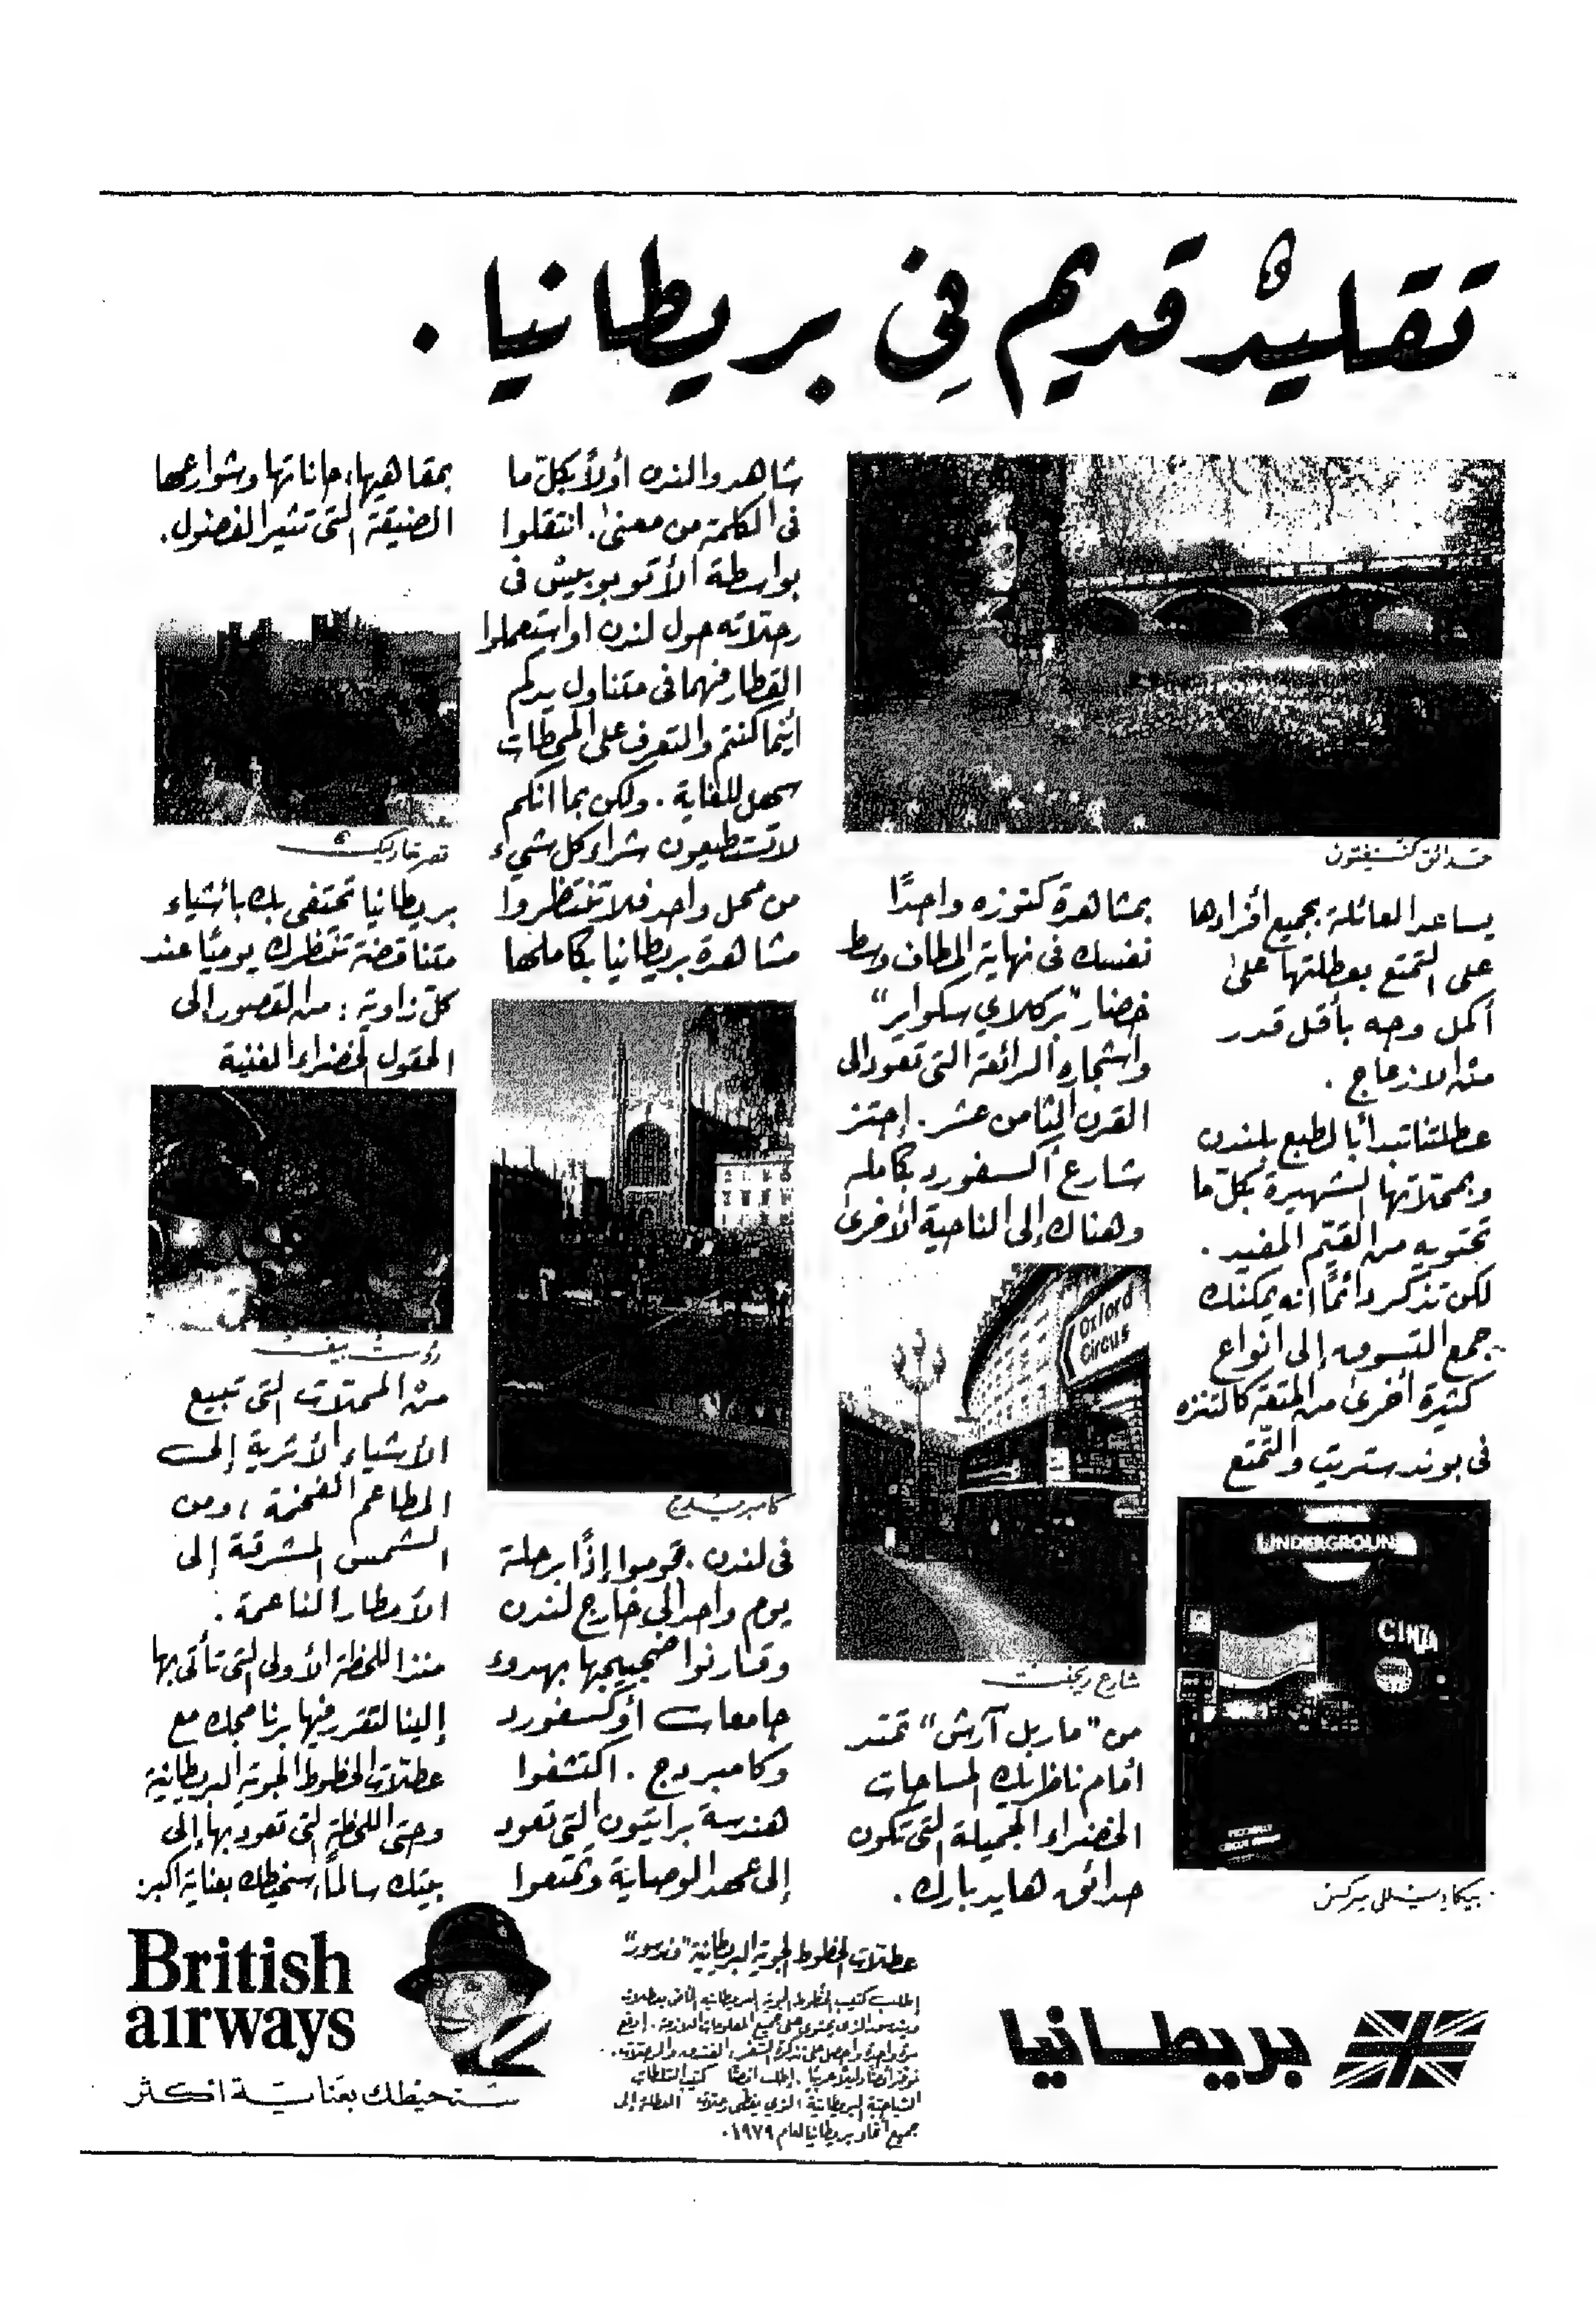 تقليد قديم في بريطانيا.
حدائق كنسنغتون
يساعد العائلة بجميع أفرادها
على التمتع بعطلتها على
أكمل وجه بأقل قدر
من الازعاج .
عطلتنا تبدأ بالطبع بلندن
وبمحلاتها الشهيرة بكل ما
تحتويه من القيّم المفيد .
لكن تذكر دائماً انه يمكنك
جمع التسوق إلى انواع
كثيرة أخرى من المتعة كالتنزه
في بوند ستريت والتّمتع
UNDERGROUND
CINZA
بيكاديللي سركس
بمشاهدة كنوزه واجداً
نفسك في نهاية المطاف وسط
خضار "بركلاي سكواير"
وأشجاره الرائعة التي تعود الى
القرن الثامن عشر. إجتز
شارع أكسفورد بكامله
وهناك إلى الناحية الأخرى
Oxford
Circus
شارع ريجنت
من "ماربل آرش" تمتد
أمام ناظريك المساحات
الخضراء الجميلة التي تكون
حدائق هايد بارك .
شاهدوا لندن أولاً بكلّ ما
في الكلمة من معنى . انتقلوا
بواسطة الأتوبوبيس في
رحلاته حول لندن أو استعملوا
القطار فهما في متناول يدكم
أينما كنتم والتعرف على المحطات
سهل للغاية . ولكن بما انكم
لا تستطيعون شراء كل شيء
من محل واحد فلا تنتظروا
مشاهدة بريطانيا بكاملها
كامبريدج
في لندن . قوموا إذاً برحلة
يوم واحد الى خارج لندن
وقارنوا ضجيجها بهدوء
جامعات أوكسفورد
وكامبردج . اكتشفوا
هندسة برايتون التي تعود
إلى عهد الوصاية وتمتعوا
بمقاهيها، حاناتها وشوارعها
الضيقة التي تثير الفضول.
قصر
بريطانيا تحتفي بك بأشياء
متناقضة تنتظرك يومياً عند
كلّ زاوية : من القصور الى
الحقول الخضراء الغنية
روست بيف
من المحلات التي تبيع
الأشياء الأثرية إلى
المطاعم الفخمة ، ومن
الشمس المشرقة إلى
الأمطار الناعمة .
منذ اللحظة الأولى التي تأتي بها
إلينا لتقرر فيها برنامجك مع
عطلات الخطوط الجوية البريطانية
وحتى اللحظة التي تعود بها إلى
بيتك سالماً، سنحيطك بعناية اكبر
بريطانيا
عطلات الخطوط الجوية البريطانية
إطلب كتيب الخطوط الجوية البريطانية الخاص بعطلات
الذي يحتوي على جميع المعلومات اللازمة . إدفع
مرة واحدة واحصل على تذكرة السفر، الفندق والرحلات.
إطلب أيضاً كتيب السلطات
السياحية البريطانية الذي يغطي رحلات العطلة إلى
جميع أنحاء بريطانيا لعام ١٩٧٩.
British
airways
سنحيطك بعناية اكثر